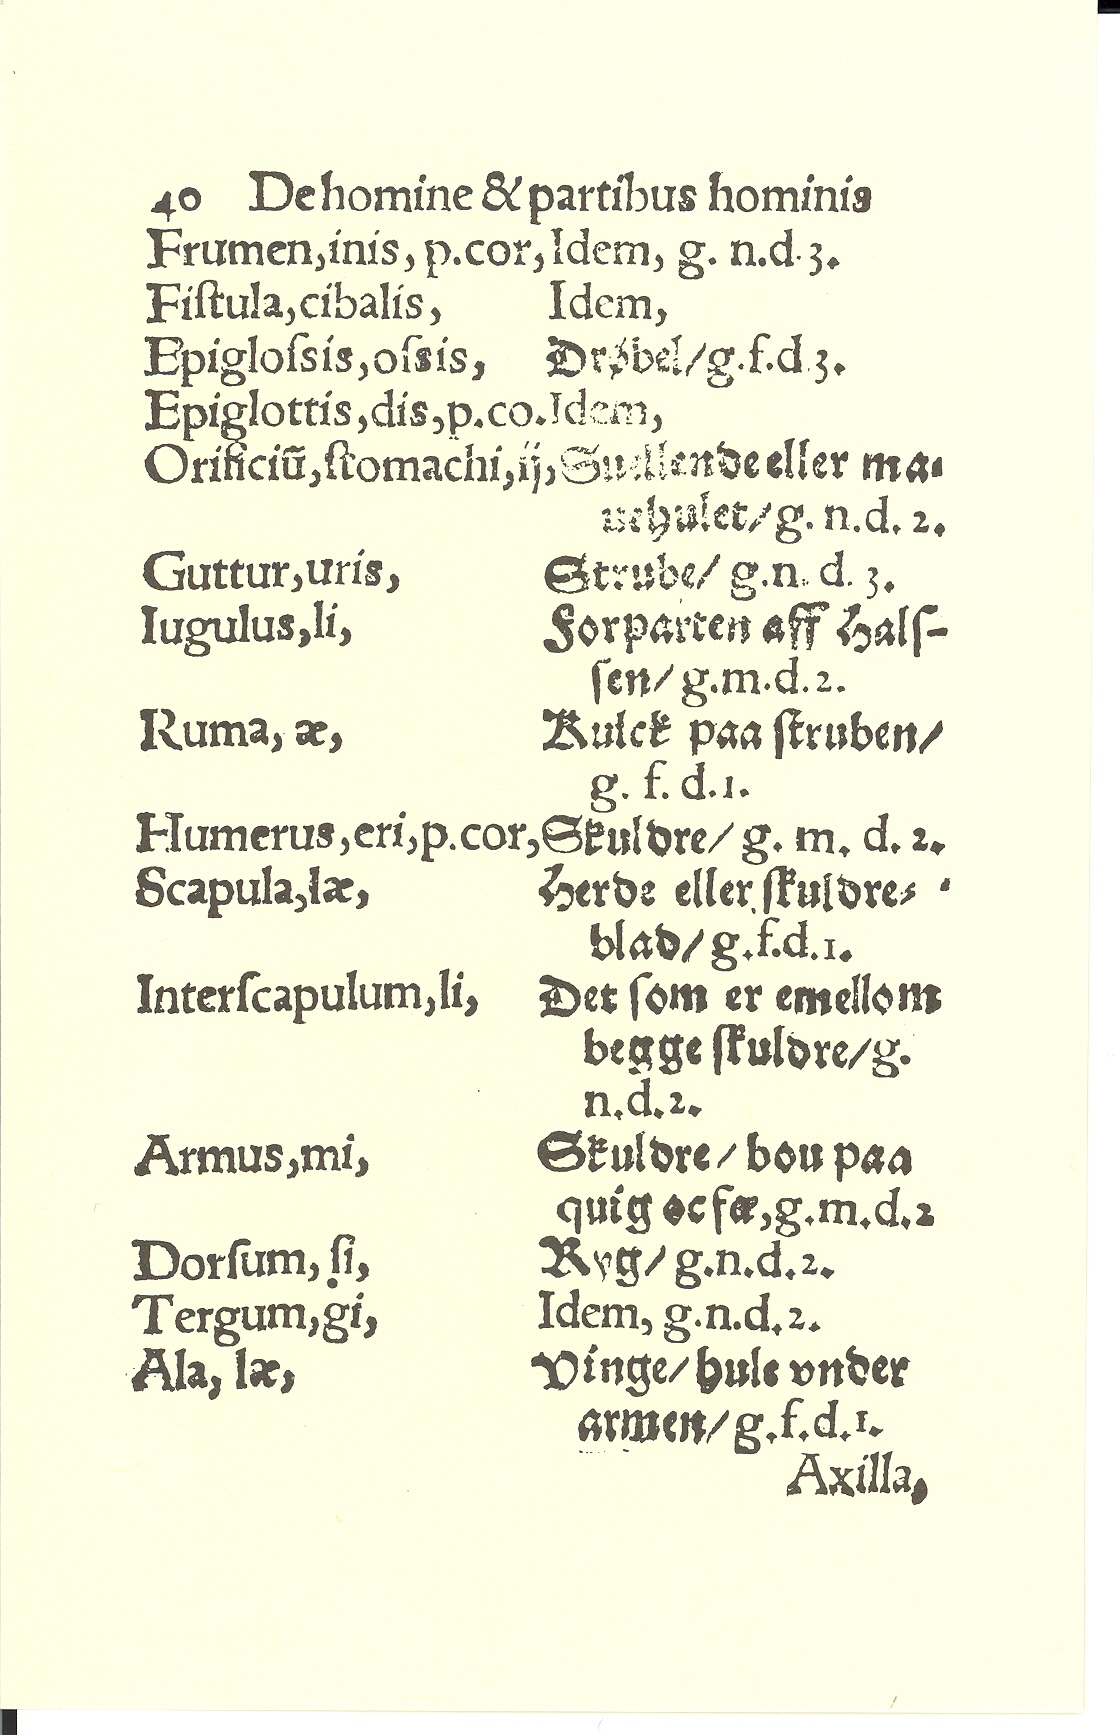 40 De homine & partibus hominis
Frumen,inis, p.cor, Idem, g. n.d.3.
Fiſtula,cibalis, Idem,
Epigloſsis,oſsis, Drøbel/g.f.d.3.
Epiglottis,dis,p.co. Idem,
Orificiũ,ſtomachi,ij, Suellende eller ma-
uehulet/g. n.d. 2.
Guttur,uris, Strube/ g.n. d. 3.
Iugulus,li, Forparten aff Halſ-
ſen/ g.m.d.2.
Ruma, æ, Kulck paa ſtruben/
g. f. d.1.
Humerus,eri,p.cor, Skuldre/ g. m. d. 2.
Scapula,læ, Herde eller ſkuldre-
blad/g.f.d.1.
Interſcapulum,li, Det ſom er emellom
begge ſkuldre/g.
n.d.2.
Armus,mi, Skuldre/bou paa
quig oc fæ,g.m.d.2
Dorſum, ſi, Ryg/ g.n.d.2.
Tergum,gi, Idem, g.n.d.2.
Ala, læ, Vinge/hule vnder
armen/g.f.d.1.
Axilla,